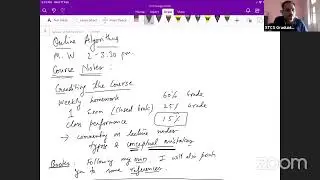 Online Algorithms
M, W 2 - 3.30 pm.
Course Notes:
Crediting the Course
Weekly homework 60% Grade
1 Exam (Closed Book) 25% Grade
class performance 15%
→ commenting on lecture notes
typos & conceptual mistakes
Books: Following my own I will also point
you to some references.
STCS Graduate...
zoom